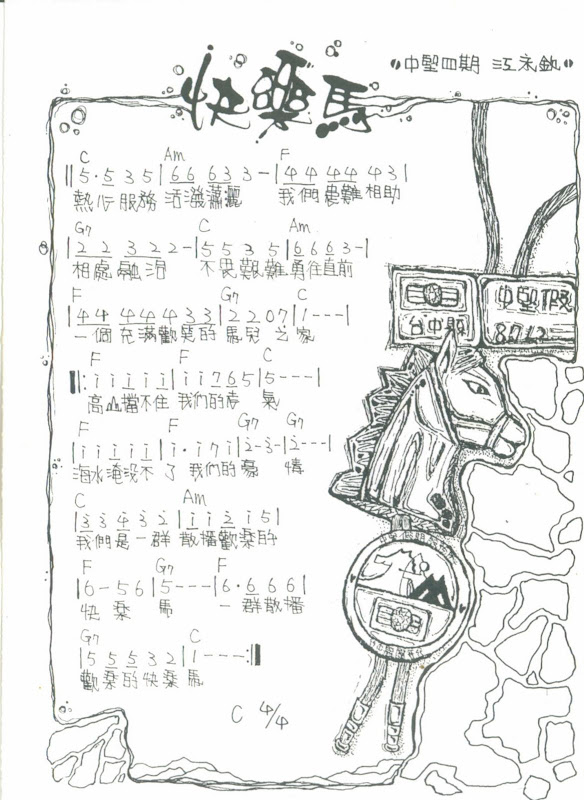 快樂馬
中墾四期 江永欽
C Am F
‖5·5 3 5|6 6 6 3 3-|4 4 4 4 4 3|
熱心服務 活潑瀟灑 我們患難相助
G7 C Am
|2 2 3 2 2-|5 5 3 5|6 6 6 3-|
相處融洽 不畏艱難勇往直前
F G7 C
|4 4 4 4 4 3 3|2 2 0 7|1---|
一個充滿歡笑的馬兒之家
F F C
‖:i i i i i|i i 7 6 5|5---|
高山擋不住 我們的志氣
F F G7 G7
|i i i i i|i·i 7 i|2-3-|2---|
海水淹没不了 我們的豪情
C Am
|3 3 4 3 2|i i 2 i 5|
我們是一群 散播歡樂的
F G7 F
|6-5 6|5---|6·6 6 6|
快樂馬 一群散播
G7 C
|5 5 5 3 2|1---:‖
歡樂的快樂馬
C 4/4
台中縣
中墾